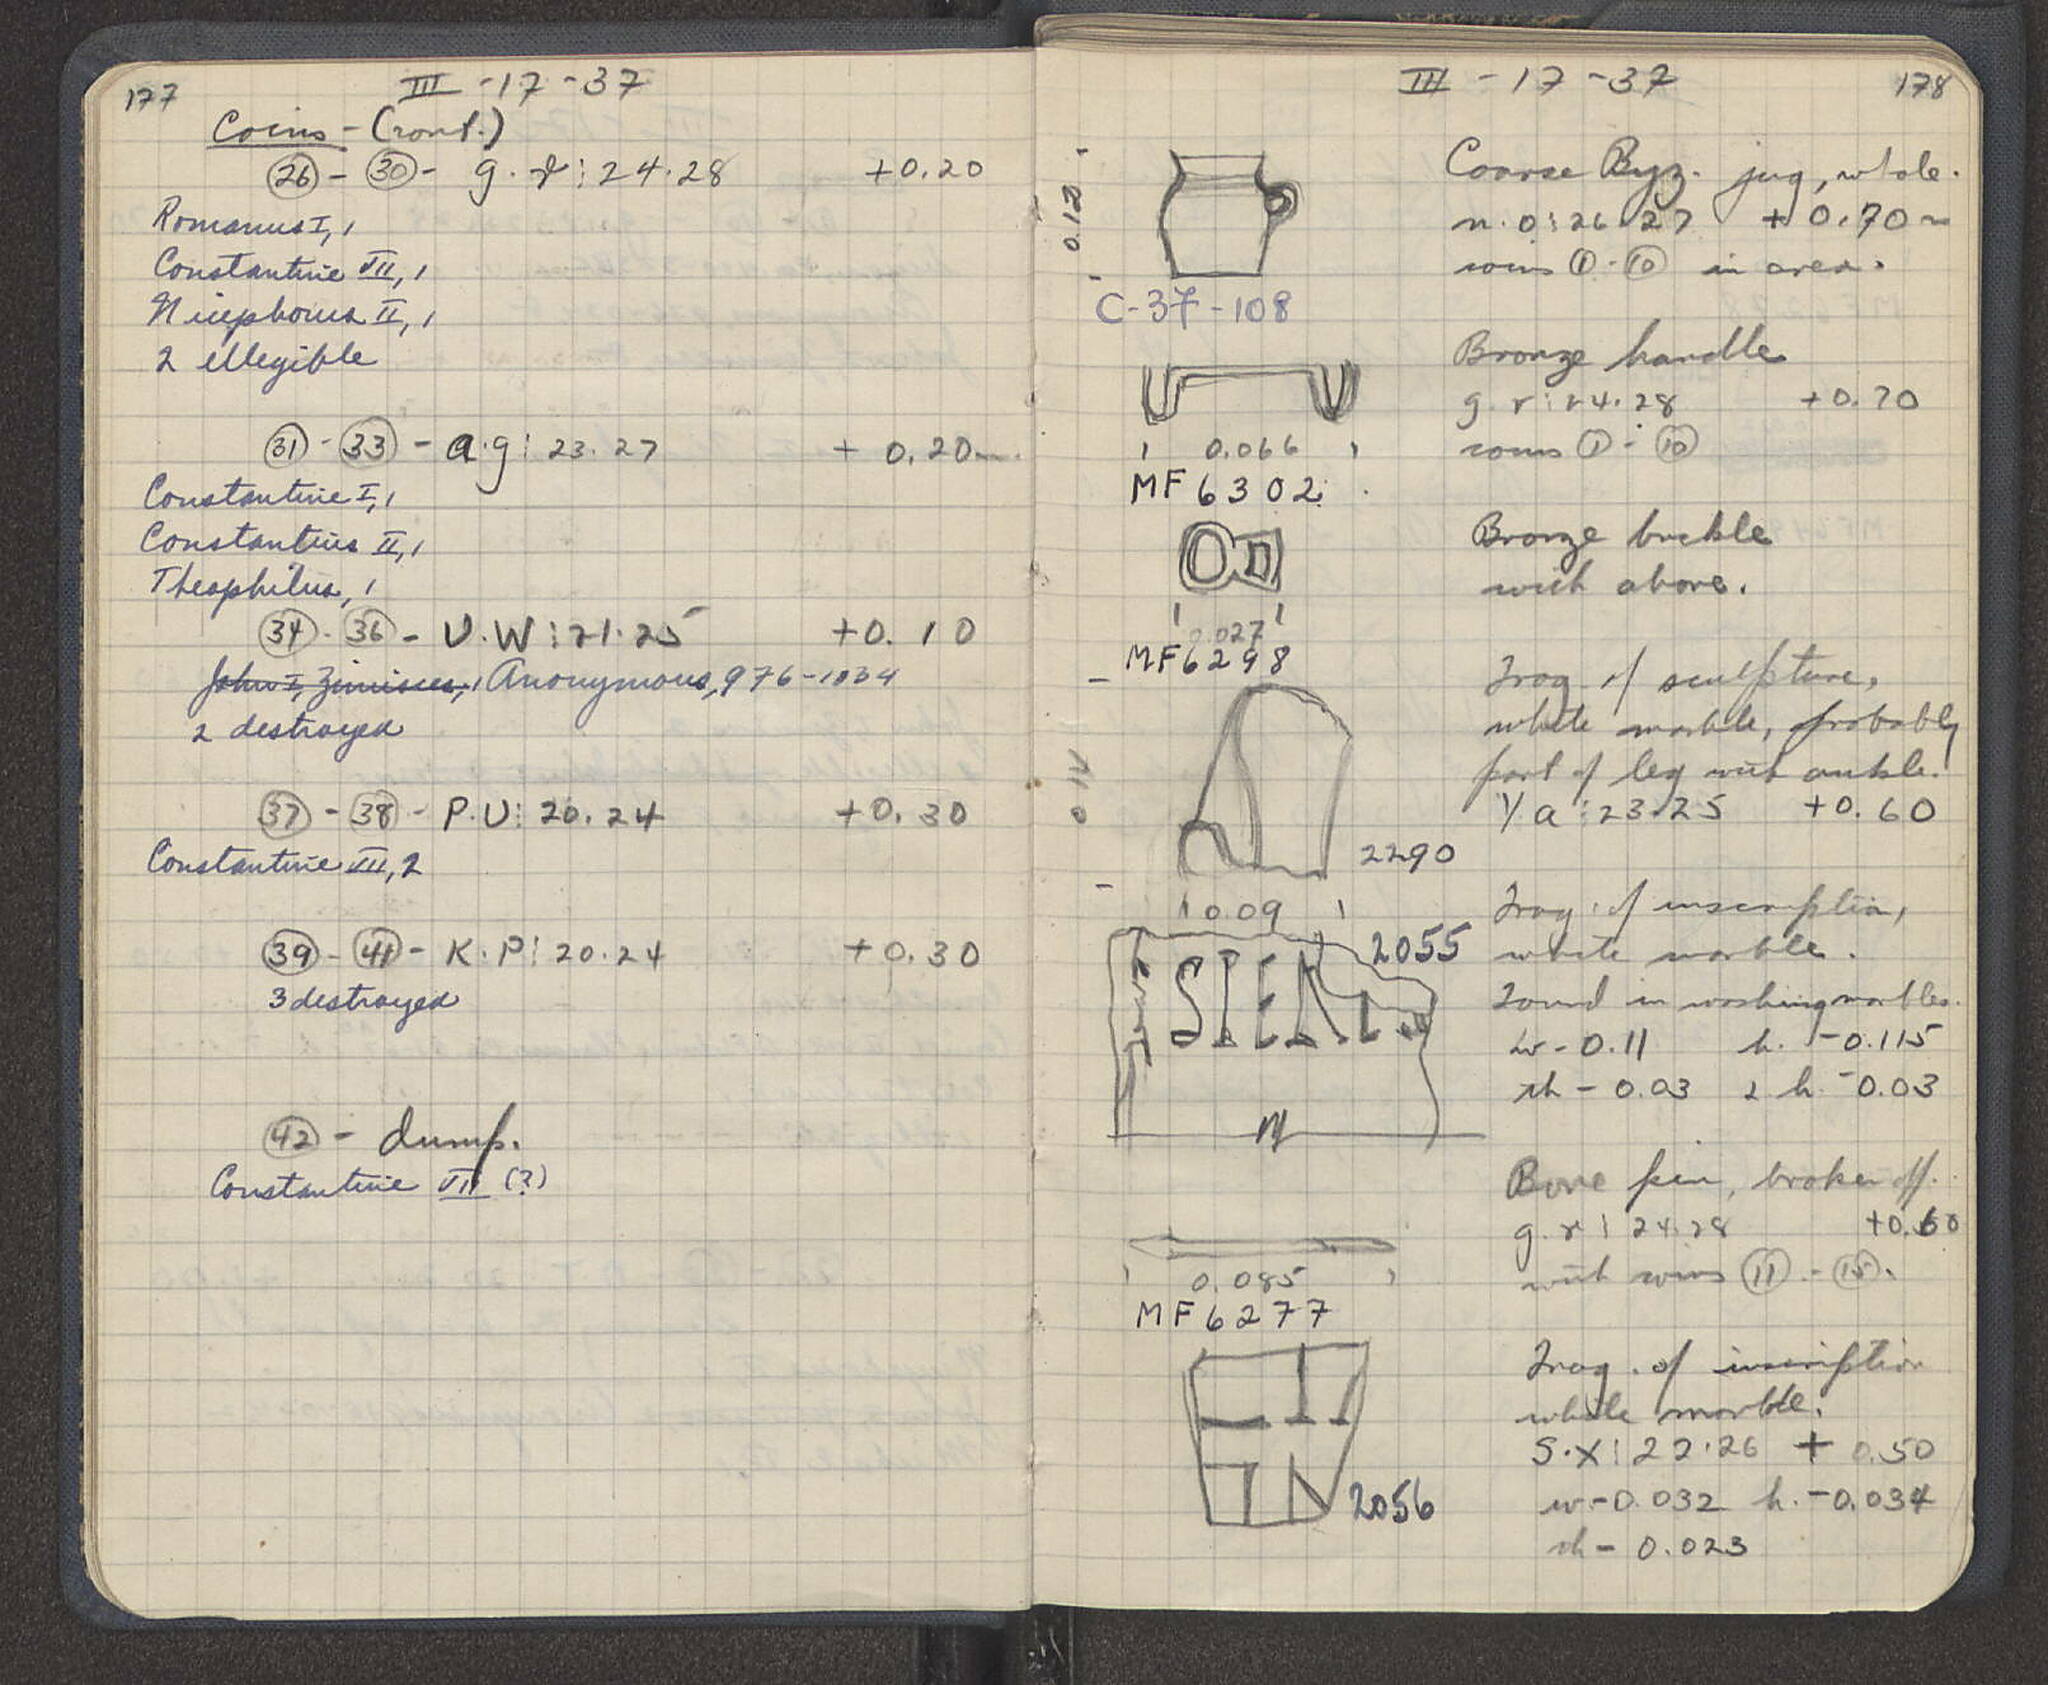 177
III - 17 - 37
Coins - (cont.)
(26) - (30) - g. r : 24.28 +0.20
Romanus I, 1
Constantine VII, 1
Nicephorus II, 1
2 illegible
(31) - (33) - a.g : 23.27 + 0.20m.
Constantine I, 1
Constantius II, 1
Theophilus, 1
(34) - (36) - U.W : 21.25 +0.10
John I, Zimisces, 1 Anonymous, 976-1034
2 destroyed
(37) - (38) - P.U : 20.24 +0.30
Constantine VII, 2
(39) - (41) - K.P : 20.24 +0.30
3 destroyed
(42) - dump.
Constantine VII (?)
III - 17 - 37
178
0.12
C-37-108
Coarse Byz. jug, whole.
n.o : 26.27 + 0.70 m
coins (1) - (10) in area.
0.066
MF 6302
Bronze handle
g. r : 24.28 +0.70
coins (1) - (10)
0.027
MF 6298
Bronze buckle
with above.
0.09
2290
Frag. of sculpture,
white marble, probably
part of leg with ankle.
Y a : 23.25 +0.60
2055
SIEN
Frag. of inscription,
white marble.
Found in washing marbles.
w - 0.11 h. - 0.115
th - 0.03 l h. - 0.03
0.085
MF 6277
Bone pin, broken off.
g. r : 24.28 +0.60
with coins (11) - (15).
2056
Frag. of inscription
white marble.
S.X : 22.26 + 0.50
w - 0.032 h. - 0.034
th - 0.023